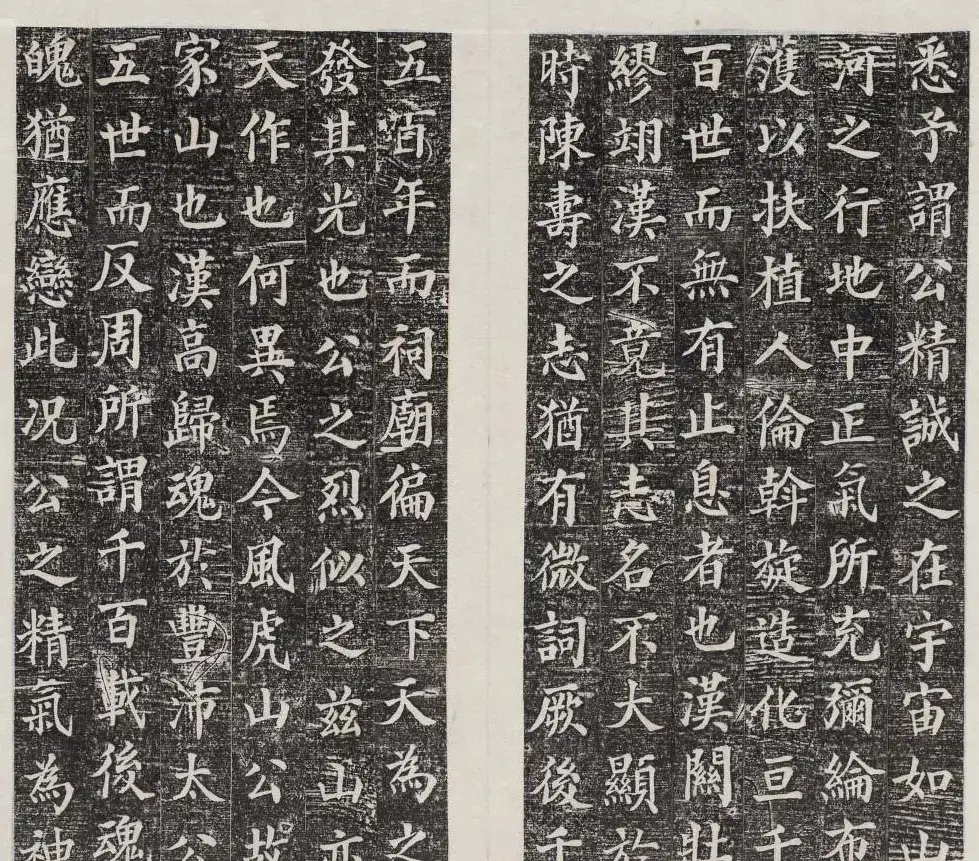 悉予謂公精誠之在宇宙如山
河之行地中正氣所充彌綸布
濩以扶植人倫斡旋造化亘千
百世而無有止息者也漢關壯
繆翊漢不竟其志名不大顯於
時陳壽之志猶有微詞厥後千
五百年而祠廟徧天下天為之
發其光也公之烈似之兹山亦
天作也何異焉今風虎山公故
家山也漢高歸魂於豐沛太公
五世而反周所謂千百載後魂
魄猶應戀此况公之精氣為神